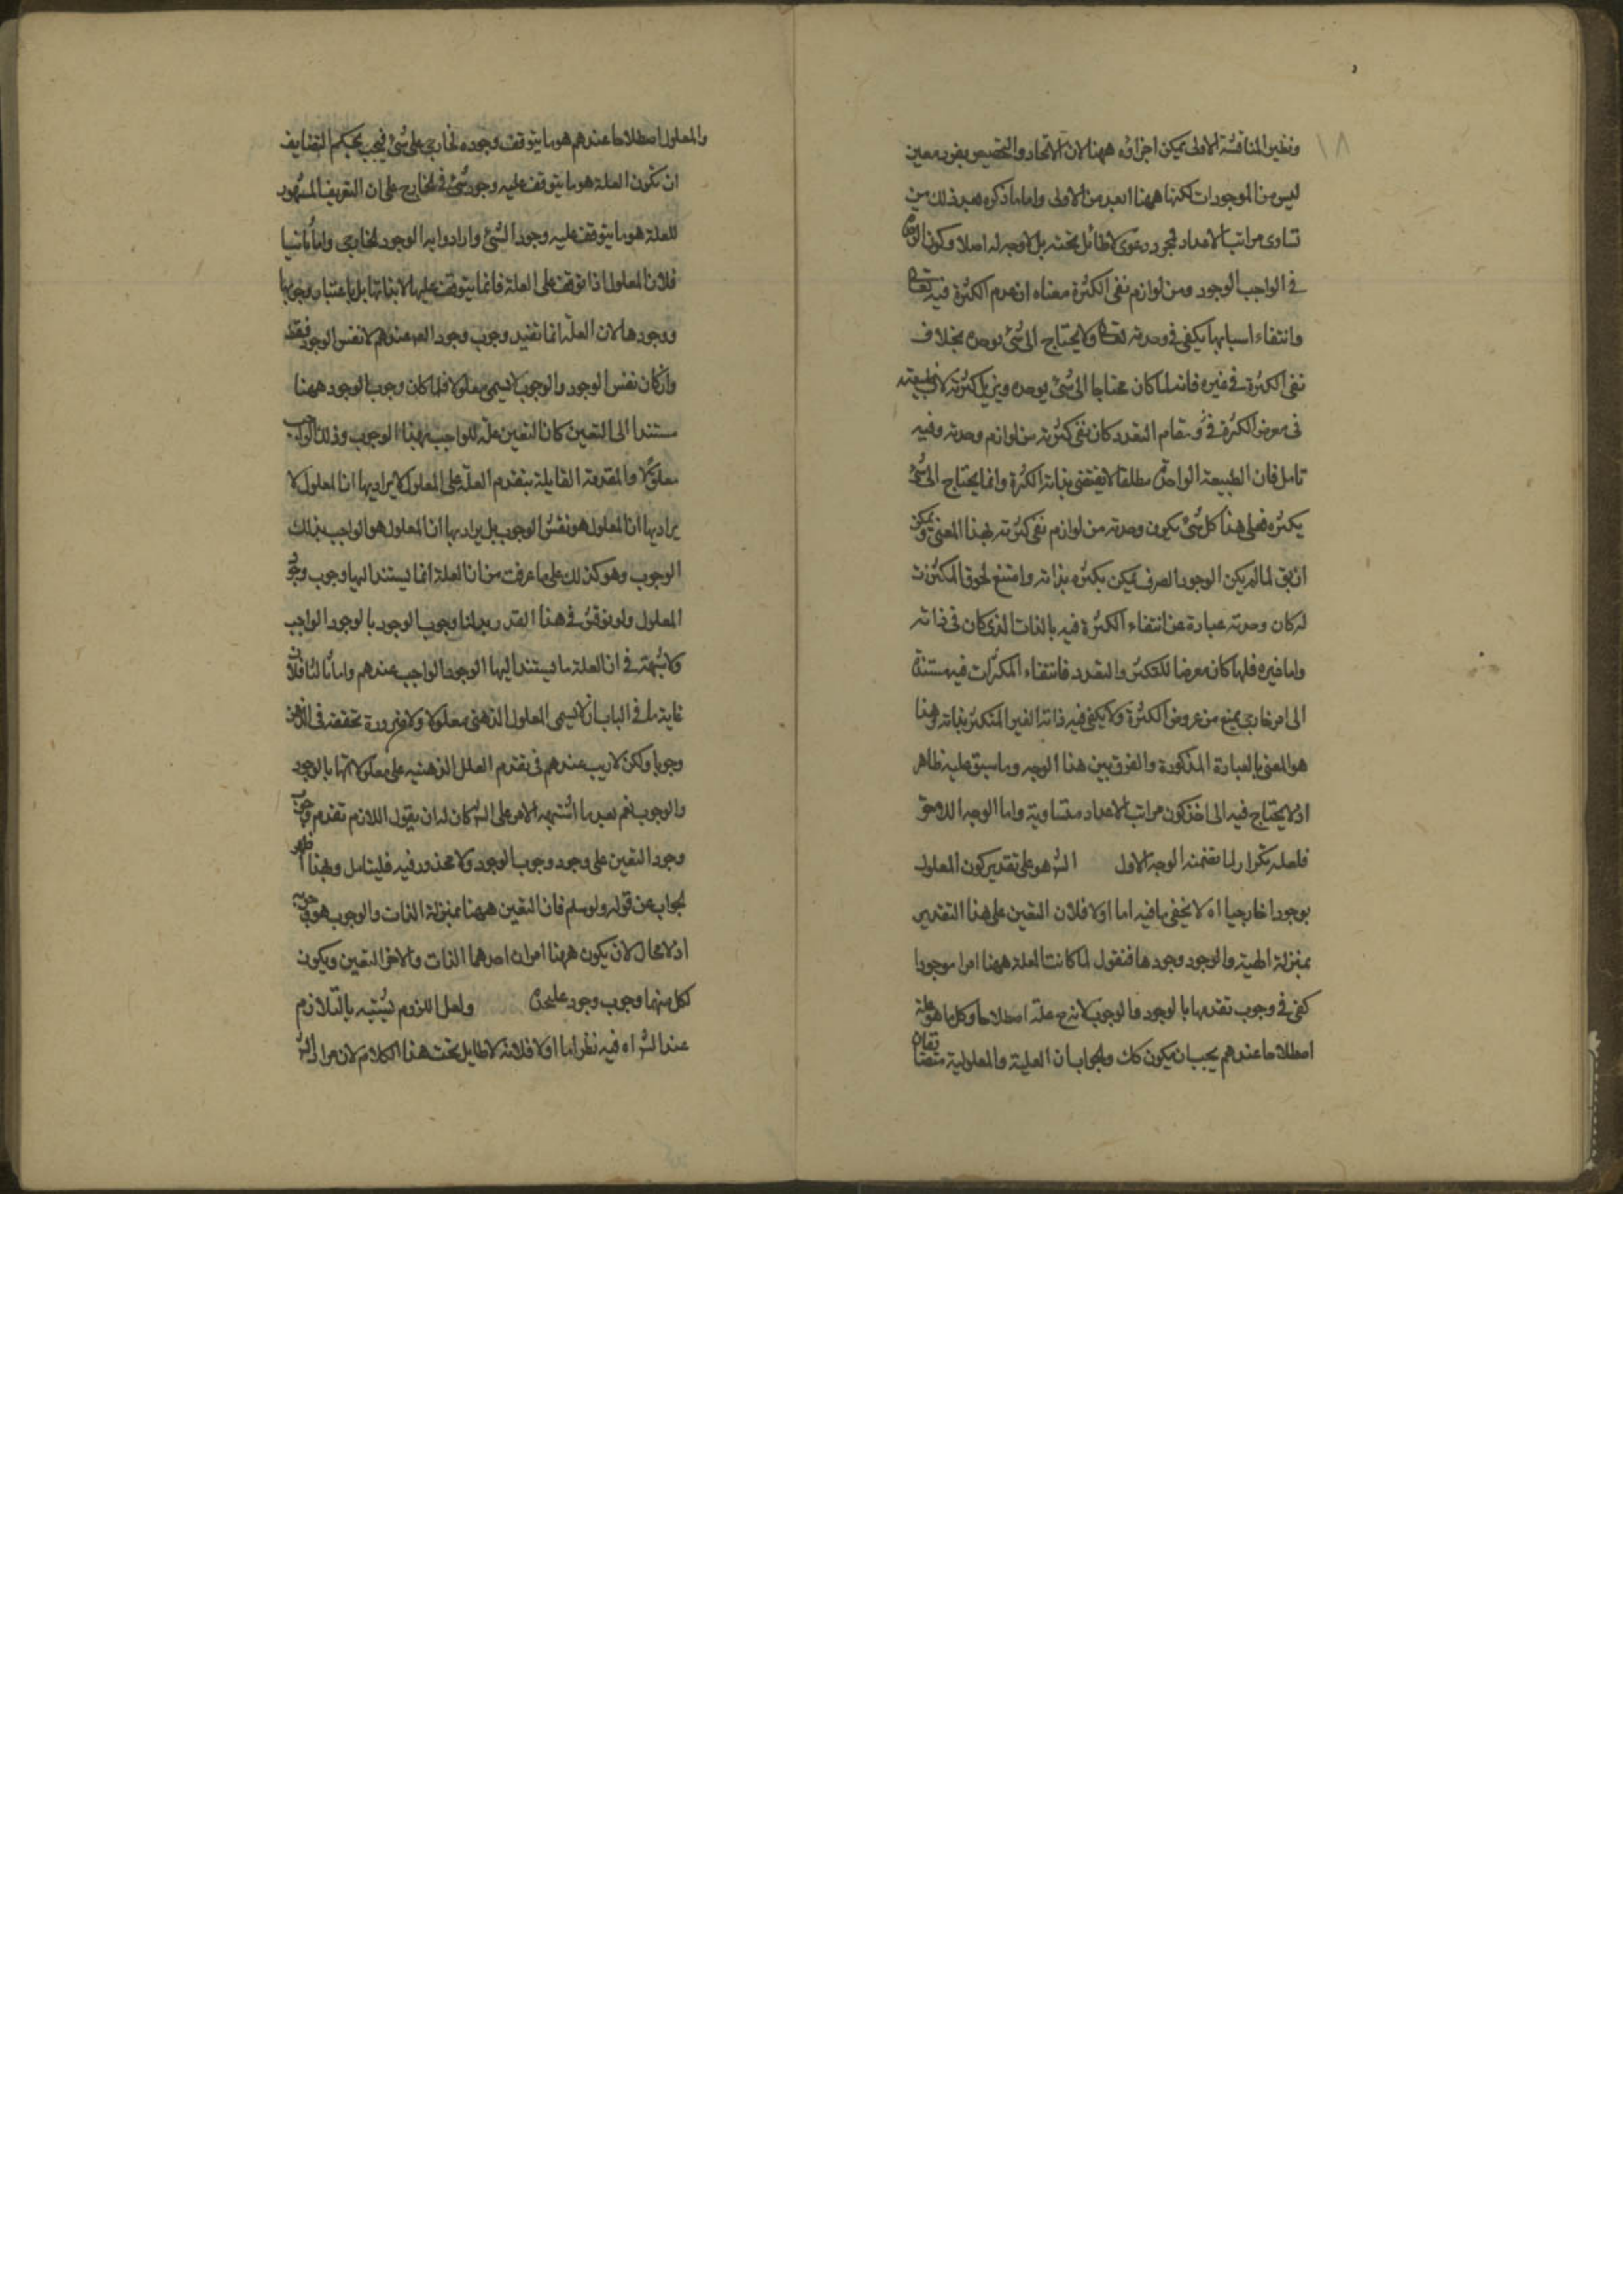 ١٨
ونظير المناقشة الاولى يمكن اجراؤه ههنا لان الاتحاد والتخصيص بفرد معين
ليس من الموجودات لكنها ههنا ابعد من الاولى واما ما ذكره بعد ذلك من
تساوى مراتب الاعداد لمجرد دعوى لا طائل تحته بل لا وجه له اصلا وكون الوحدة
فى الواجب الوجود ومن لوازم نفى الكثرة معناه ان عدم الكثرة فيه تعالى
وانتفاء اسبابها يكفى فى وحدته تعالى ولا يحتاج الى شئ يوحده بخلاف
نفى الكثرة فى غيره فانه لما كان محتاجا الى شئ يوحده ويزيل كثرته لان طبيعته
فى معرض الكثرة فى ومقام التعدد كان نفى كثرته من لوازم وحدته وفيه
تامل فان الطبيعة الواحدة مطلقا لا يقتضى بذاته الكثرة وانما يحتاج الى شئ
يكثره فعلى هذا كل شئ يكون وحدته من لوازم نفى كثرته بهذا المعنى ويمكن
ان يق لما لم يكن الوجود الصرف يمكن يكثره بذاته وامتنع لحوق المكثرات
له كان وحدته عبارة عن انتفاء الكثرة فيه بالذات الذى كان فى ذاته
واما غيره فلما كان معرضا للتكثر والتعدد فانتفاء المكثرات فيه مستندة
الى امر خارجى يمنع من عروض الكثرة ولا يكفى فيه ذاته الغير المتكثر بذاته وهذا
هو المعنى بالعبارة المذكورة والفرق بين هذا الوجه وما سبق عليه ظاهر
اذ لا يحتاج فيه الى اخذ كون مراتب الاعداد متساوية واما الوجه اللاحق
فلعله تكرار لما تضمنه الوجه الاول الشر هو على تقدير كون المعلول
بوجود خارجيا اه لا يخفى ما فيه اما اولا فلان التعين على هذا التقدير
بمنزلة المهية والوجود وجودها فنقول لما كانت العلة ههنا امرا موجودا
كفى فى وجوب تقدمها بالوجود والوجوب لانه ح علة اصطلاحا وكل ما هو علة
اصطلاحا عندهم يجب ان يكون كك والجواب ان العلية والمعلولية متضايفان
والمعلول اصطلاحا عندهم هو ما يتوقف وجوده الخارجى على شئ فيجب بحكم التضايف
ان تكون العلة هو ما يتوقف عليه وجود شئ فى الخارج على ان التعريف المشهور
للعلة هو ما يتوقف عليه وجود الشئ وارادوا به الوجود الخارجى واما ثانيا
فلان المعلول اذا توقف على العلة فانما يتوقف عليها لا بذاتها بل باعتبار وجوبها
ووجودها لان العلة انما تفيد وجوب وجود المعـ عندهم لا نفس الوجود فقط
وان كان نفس الوجود والوجوب لا يسمى معلولا فلما كان وجوب الوجود ههنا
مستندا الى التعين كان التعين علة للواجب بهذا الوجوب وذلك الواجب
معلولا والمقدمة القايلة بتقدم العلة على المعلول لا يراد بها ان المعلول لا
يراد بها ان المعلول هو نفس الوجوب بل يراد بها ان المعلول هو الواجب بذلك
الوجوب وهو كذلك على ما عرفت من ان العلة انما يستند اليها وجوب وجود
المعلول ولو نوقش فى هذا القدر بدلنا وجوب الوجود بالوجود الواجب
ولا شبهة فى ان العلة ما يستند اليها الوجود الواجب عندهم واما ثالثا فلان
غاية ما فى الباب ان لا يسمى المعلول الذهنى معلولا ولا ضرورة تحققه فى الذهن
وجوبا ولكن لا ريب عندهم فى تقدم العلل الذهنية على معلولاتها بالوجود
والوجوب نعم بعد ما اشتبه الامر على الشر كان له ان يقول اللازم تقدم وجوب
وجود التعين على وجود وجوب الوجود ولا محذور فيه فليتامل وبهذا ظهر
الجواب عن قوله ولو سلم فان التعين ههنا بمنزلة الذات والوجوب هو وجوبه
اذ لا محال لان يكون ههنا امران احدهما الذات والاخر التعين ويكون
لكل منهما وجوب وجود عليحدة ولعل اللزوم يشتبه بالتلازم
عند الشر اه فيه نظر اما اولا فلانه لا طايل تحت هذا الكلام لان مراد الشر